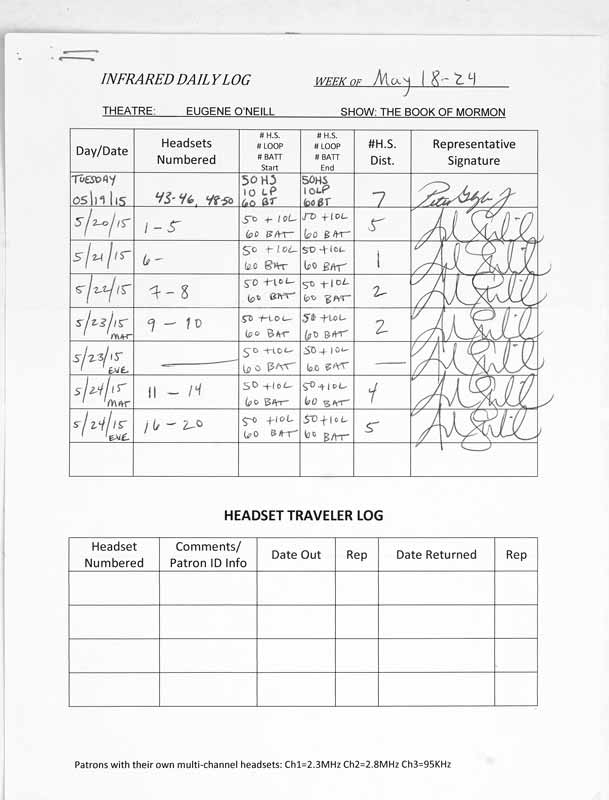 INFRARED DAILY LOG WEEK OF May 18-24
THEATRE: EUGENE O'NEILL SHOW: THE BOOK OF MORMON
Day/Date Headsets Numbered # H.S. # LOOP # BATT Start # H.S. # LOOP # BATT End #H.S. Dist. Representative Signature
TUESDAY 05/19/15 43-46, 48-50 50 HS 10 LP 60 BT 50HS 10LP 60BT 7
5/20/15 1-5 50 +10L 60 BAT 50 +10L 60 BAT 5
5/21/15 6- 50 +10L 60 BAT 50 +10L 60 BAT 1
5/22/15 7-8 50 +10L 60 BAT 50 +10L 60 BAT 2
5/23/15 MAT 9-10 50 +10L 60 BAT 50 +10L 60 BAT 2
5/23/15 EVE — 50 +10L 60 BAT 50 +10L 60 BAT —
5/24/15 MAT 11-14 50 +10L 60 BAT 50 +10L 60 BAT 4
5/24/15 EVE 16-20 50 +10L 60 BAT 50 +10L 60 BAT 5
HEADSET TRAVELER LOG
Headset Numbered Comments/ Patron ID Info Date Out Rep Date Returned Rep
Patrons with their own multi-channel headsets: Ch1=2.3MHz Ch2=2.8MHz Ch3=95KHz